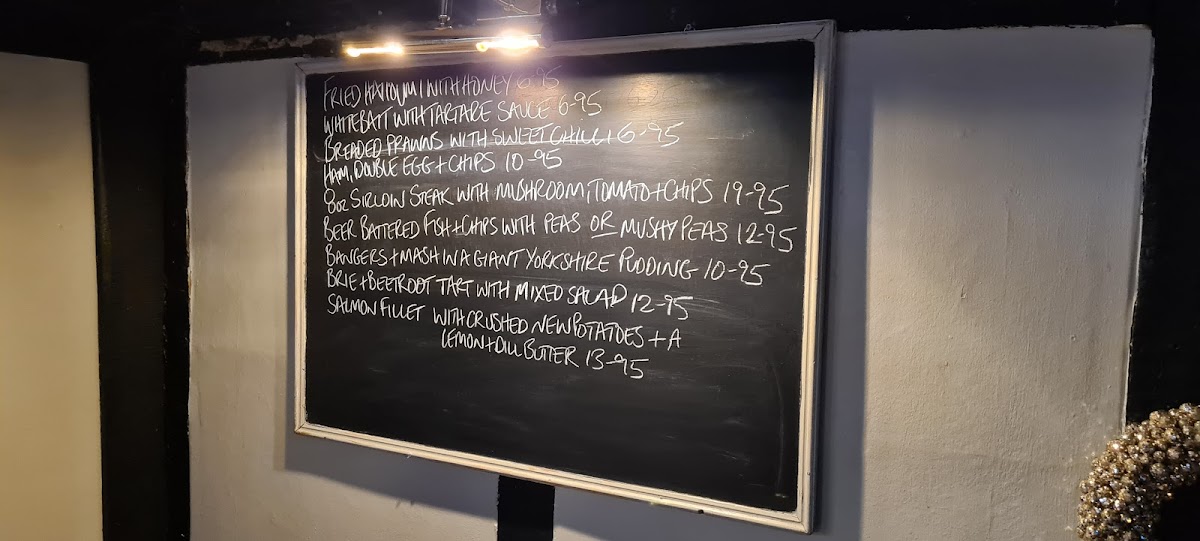 FRIED HALLOUMI WITH HONEY 6-95
WHITEBAIT WITH TARTARE SAUCE 6-95
BREADED PRAWNS WITH SWEET CHILLI 6-95
HAM, DOUBLE EGG + CHIPS 10-95
8oz SIRLOIN STEAK WITH MUSHROOM, TOMATO + CHIPS 19-95
BEER BATTERED FISH + CHIPS WITH PEAS OR MUSHY PEAS 12-95
BANGERS + MASH IN A GIANT YORKSHIRE PUDDING 10-95
BRIE + BEETROOT TART WITH MIXED SALAD 12-95
SALMON FILLET WITH CRUSHED NEW POTATOES + A
LEMON + DILL BUTTER 13-95